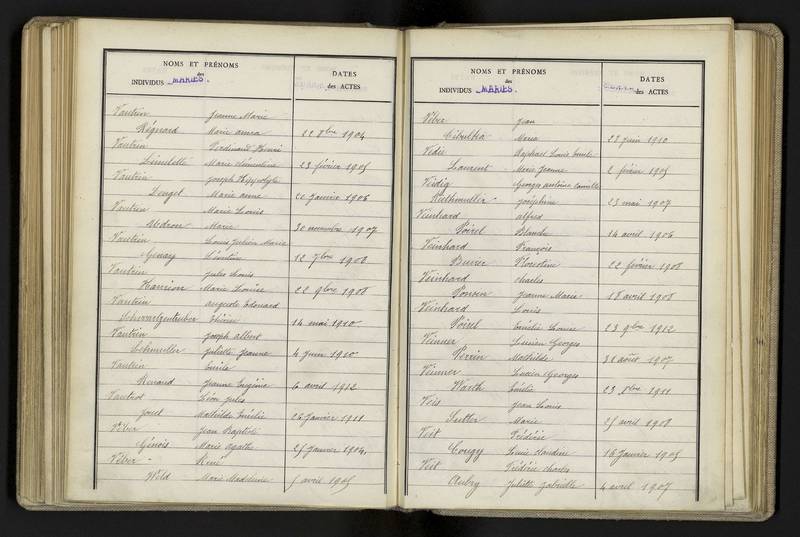 NOMS ET PRÉNOMS
des
INDIVIDUS MARIÉS.
DATES
des ACTES
Vautrin Jeanne Marie
Régnard Marie anna 22 8bre 1904
Vautrin Ferdinand Henri
Marie Clémentine 23 février 1905
Vautrin joseph Hippolyte
Dengel Marie anne 20 Janvier 1906
Vautrin Marie Louis
Marie 30 novembre 1907
Vautrin Louis Julien Marie
Génay Léontine 12 7bre 1908
Vautrin Jules Louis
Harrion Marie Louise 22 9bre 1908
Vautrin auguste Edouard
14 mai 1910
Vautrin joseph albert
Schmeller Juliette Jeanne 4 Juin 1910
Vautrin Emile
Renaud Jeanne Eugénie 6 avril 1912
Vautrot Léon Jules
jouet Mathilde Emélie 26 Janvier 1911
Véber Jean Baptiste
Génois Marie Agathe 25 Janvier 1904.
Véber - René
Wild Marie Madeleine 5 avril 1905
NOMS ET PRÉNOMS
des
INDIVIDUS MARIÉS.
DATES
des ACTES
Véber Jean
Cibulka Maria 28 juin 1910
Védie Raphael Louis Emile
Laurent Marie Jeanne 2 février 1905
Veidig Georges antoine Camille
Ruthmuller Joséphine 23 mai 1907
Veinhard alfred
Poirel Blanche 14 avril 1906
Veinhard François
Florentine 22 février 1908
Veinhard charles
Ponsin Jeanne Marie 18 avril 1908
Veinhard Louis
Poirel Emélie Louise 23 9bre 1912
Veinner Lucien Georges
Perrin Mathilde 31 août 1907
Veinner Lucien Georges
Warth Emélie 23 Xbre 1911
Veis Jean Louis
Sutter Marie 25 avril 1908
Veit Frédéric
Cougy Louise Claudine 16 Janvier 1905
Veit Frédéric charles
Aubry Juliette Gabrielle 4 avril 1907